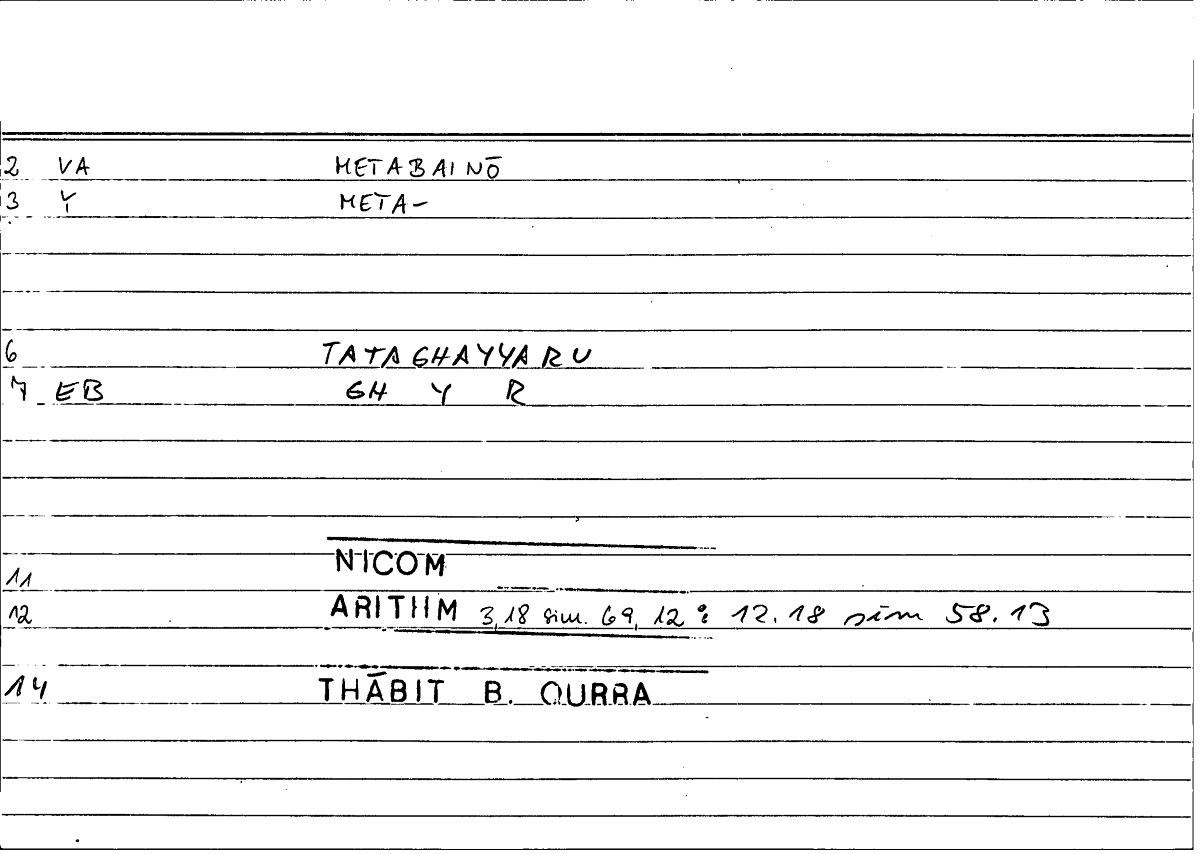 2 VA METABAINŌ
3 Y META-
6 TATAGHAYYARU
7 EB GH Y R
11 NICOM
12 ARITHM 3,18 sim. 69, 12 : 12.18 sim 58.13
14 THĀBIT B. QURRA